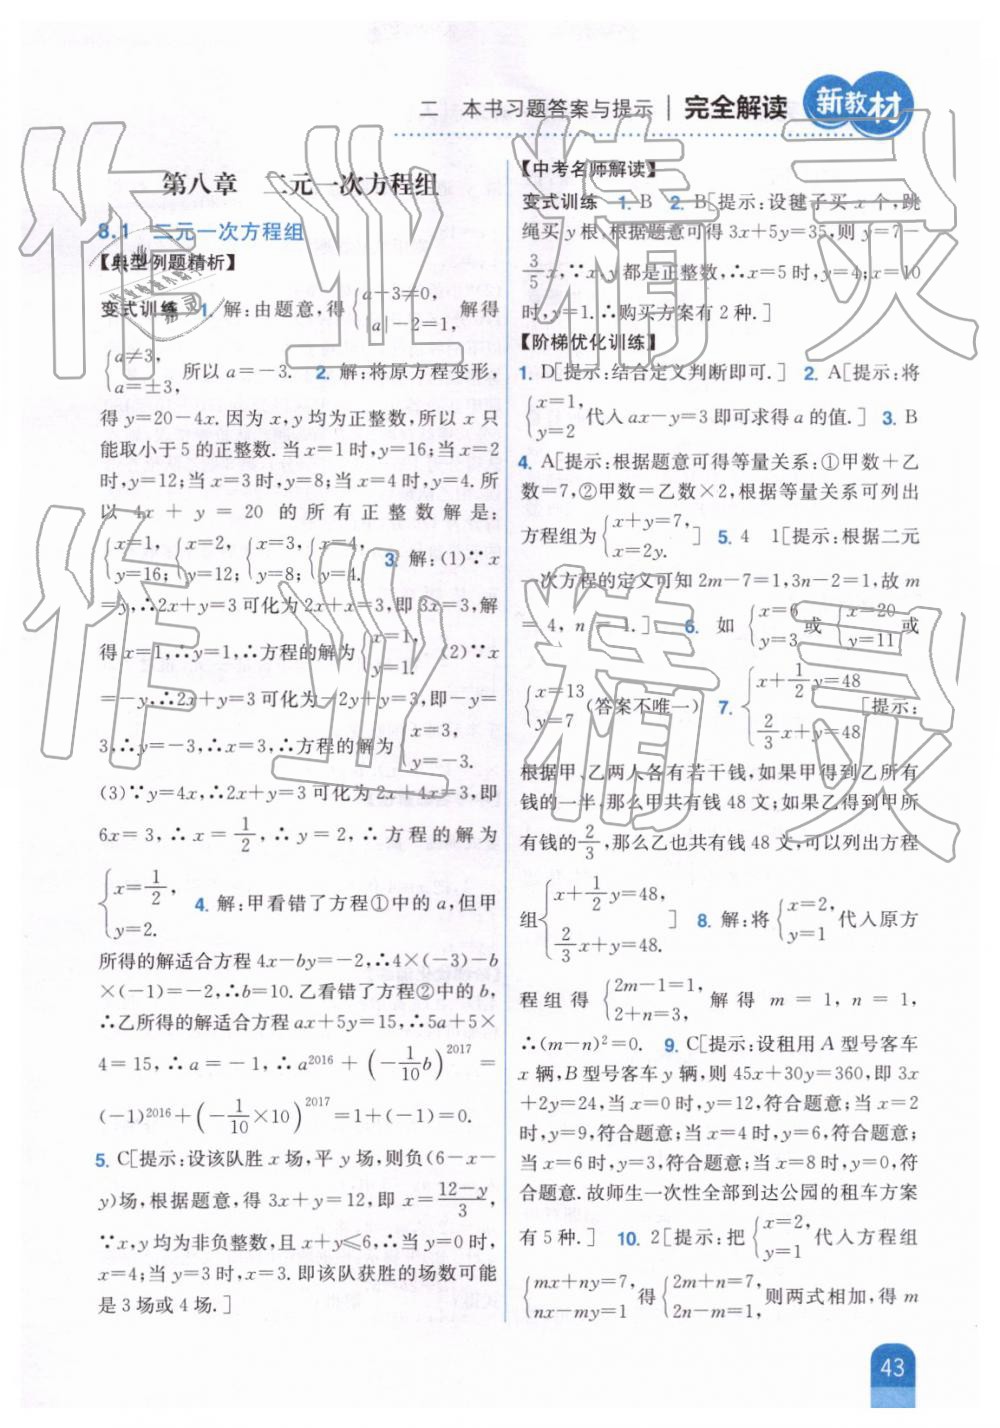 二 本书习题答案与提示 | 完全解读 新教材
第八章 二元一次方程组
8.1 二元一次方程组
【典型例题精析】
变式训练 1. 解:由题意,得{a-3≠0, |a|-2=1, 解得
{a≠3, a=±3, 所以 a=-3. 2. 解:将原方程变形,
得 y=20-4x. 因为 x,y 均为正整数,所以 x 只
能取小于 5 的正整数. 当 x=1 时,y=16;当 x=2
时,y=12;当 x=3 时,y=8;当 x=4 时,y=4. 所
以 4x+y=20 的所有正整数解是:
{x=1, y=16; {x=2, y=12; {x=3, y=8; {x=4, y=4. 3. 解:(1)∵x
=y,∴2x+y=3 可化为 2x+x=3,即 3x=3,解
得 x=1,∴y=1,∴方程的解为{x=1, y=1. (2)∵x
=-y,∴2x+y=3 可化为-2y+y=3,即-y=
3,∴y=-3,∴x=3,∴方程的解为{x=3, y=-3.
(3)∵y=4x,∴2x+y=3 可化为 2x+4x=3,即
6x=3,∴x=1/2,∴y=2,∴方程的解为
{x=1/2, y=2. 4. 解:甲看错了方程①中的 a,但甲
所得的解适合方程 4x-by=-2,∴4×(-3)-b
×(-1)=-2,∴b=10. 乙看错了方程②中的 b,
∴乙所得的解适合方程 ax+5y=15,∴5a+5×
4=15,∴a=-1,∴a^2016+(-1/10 b)^2017=
(-1)^2016+(-1/10×10)^2017=1+(-1)=0.
5. C[提示:设该队胜 x 场,平 y 场,则负(6-x-
y)场,根据题意,得 3x+y=12,即 x=(12-y)/3,
∵x,y 均为非负整数,且 x+y≤6,∴当 y=0 时,
x=4;当 y=3 时,x=3. 即该队获胜的场数可能
是 3 场或 4 场.]
【中考名师解读】
变式训练 1. B 2. B[提示:设毽子买 x 个,跳
绳买 y 根,根据题意可得 3x+5y=35,则 y=7-
3/5 x,∵x,y 都是正整数,∴x=5 时,y=4;x=10
时,y=1. ∴购买方案有 2 种.]
【阶梯优化训练】
1. D[提示:结合定义判断即可.] 2. A[提示:将
{x=1, y=2 代入 ax-y=3 即可求得 a 的值.] 3. B
4. A[提示:根据题意可得等量关系:①甲数+乙
数=7,②甲数=乙数×2,根据等量关系可列出
方程组为{x+y=7, x=2y. ] 5. 4 1[提示:根据二元
一次方程的定义可知 2m-7=1,3n-2=1,故 m
=4,n=1.] 6. 如{x=6 y=3 或{x=20 y=11 或
{x=13 y=7 (答案不唯一) 7. {x+1/2 y=48 2/3 x+y=48 [提示:
根据甲、乙两人各有若干钱,如果甲得到乙所有
钱的一半,那么甲共有钱 48 文;如果乙得到甲所
有钱的2/3,那么乙也共有钱 48 文,可以列出方程
组{x+1/2 y=48, 2/3 x+y=48. ] 8. 解:将{x=2, y=1 代入原方
程组得{2m-1=1, 2+n=3, 解得 m=1,n=1,
∴(m-n)²=0. 9. C[提示:设租用 A 型号客车
x 辆,B 型号客车 y 辆,则 45x+30y=360,即 3x
+2y=24,当 x=0 时,y=12,符合题意;当 x=2
时,y=9,符合题意;当 x=4 时,y=6,符合题意;
当 x=6 时,y=3,符合题意;当 x=8 时,y=0,符
合题意. 故师生一次性全部到达公园的租车方案
有 5 种.] 10. 2[提示:把{x=2, y=1 代入方程组
{mx+ny=7, nx-my=1 得{2m+n=7, 2n-m=1, 则两式相加,得 m
43
作业精灵
作业精灵